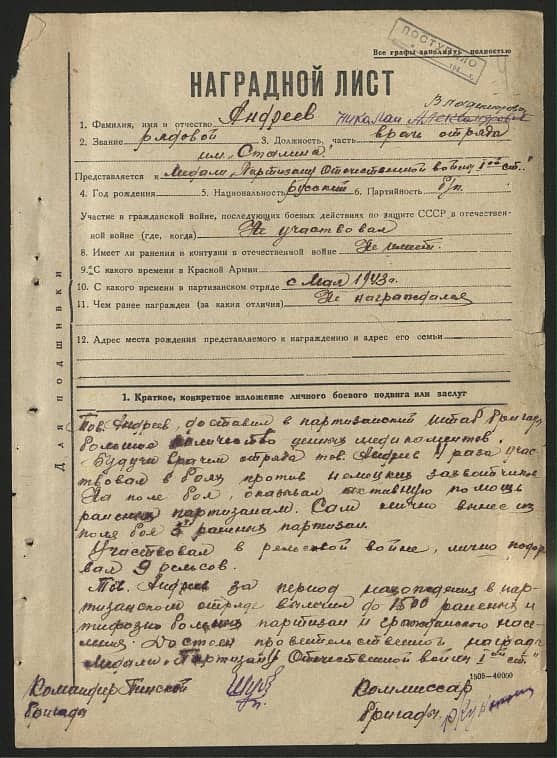 Все графы заполнять полностью
ПОСТУПИЛО
НАГРАДНОЙ ЛИСТ
Владимирович
1. Фамилия, имя и отчество Андреев Николай Александрович
2. Звание рядовой 3. Должность, часть врач отряда
им. „Сталина“
Представляется к Медали „Партизану Отечественной войны I ой ст.“
4. Год рождения 5. Национальность русский 6. Партийность б/п.
Участие в гражданской войне, последующих боевых действиях по защите СССР в отечествен-
ной войне (где, когда) Не участвовал
8. Имеет ли ранения и контузии в отечественной войне Не имеет.
9. С какого времени в Красной Армии
10. С какого времени в партизанском отряде с Мая 1943 г.
11. Чем ранее награжден (за какия отличия) Не награждался
12. Адрес места рождения представляемого к награждению и адрес его семьи
Для подшивки
1. Краткое, конкретное изложение личного боевого подвига или заслуг
Тов. Андреев, доставил в партизанский штаб бригады
большое количество ценных медикаментов.
Будучи врачем отряда тов. Андреев 4 раза учас-
твовал в боях против немецких захватчиков
На поле боя, оказывал активную помощь
раненым партизанам. Сам лично вынес из
поля боя 5 раненых партизан.
Участвовал в рельсовой войне, лично подор-
вал 9 рельсов.
Тов. Андреев за период нахождения в пар-
тизанском отряде вылечил до 1500 раненых и
тифозно больных партизан и гражданского насе-
ления. Достоен провительственной награды
Медали „Партизану Отечественной войны I ой ст.“
1505—40000
Командир Пинской Коммиссар
бригады бригады